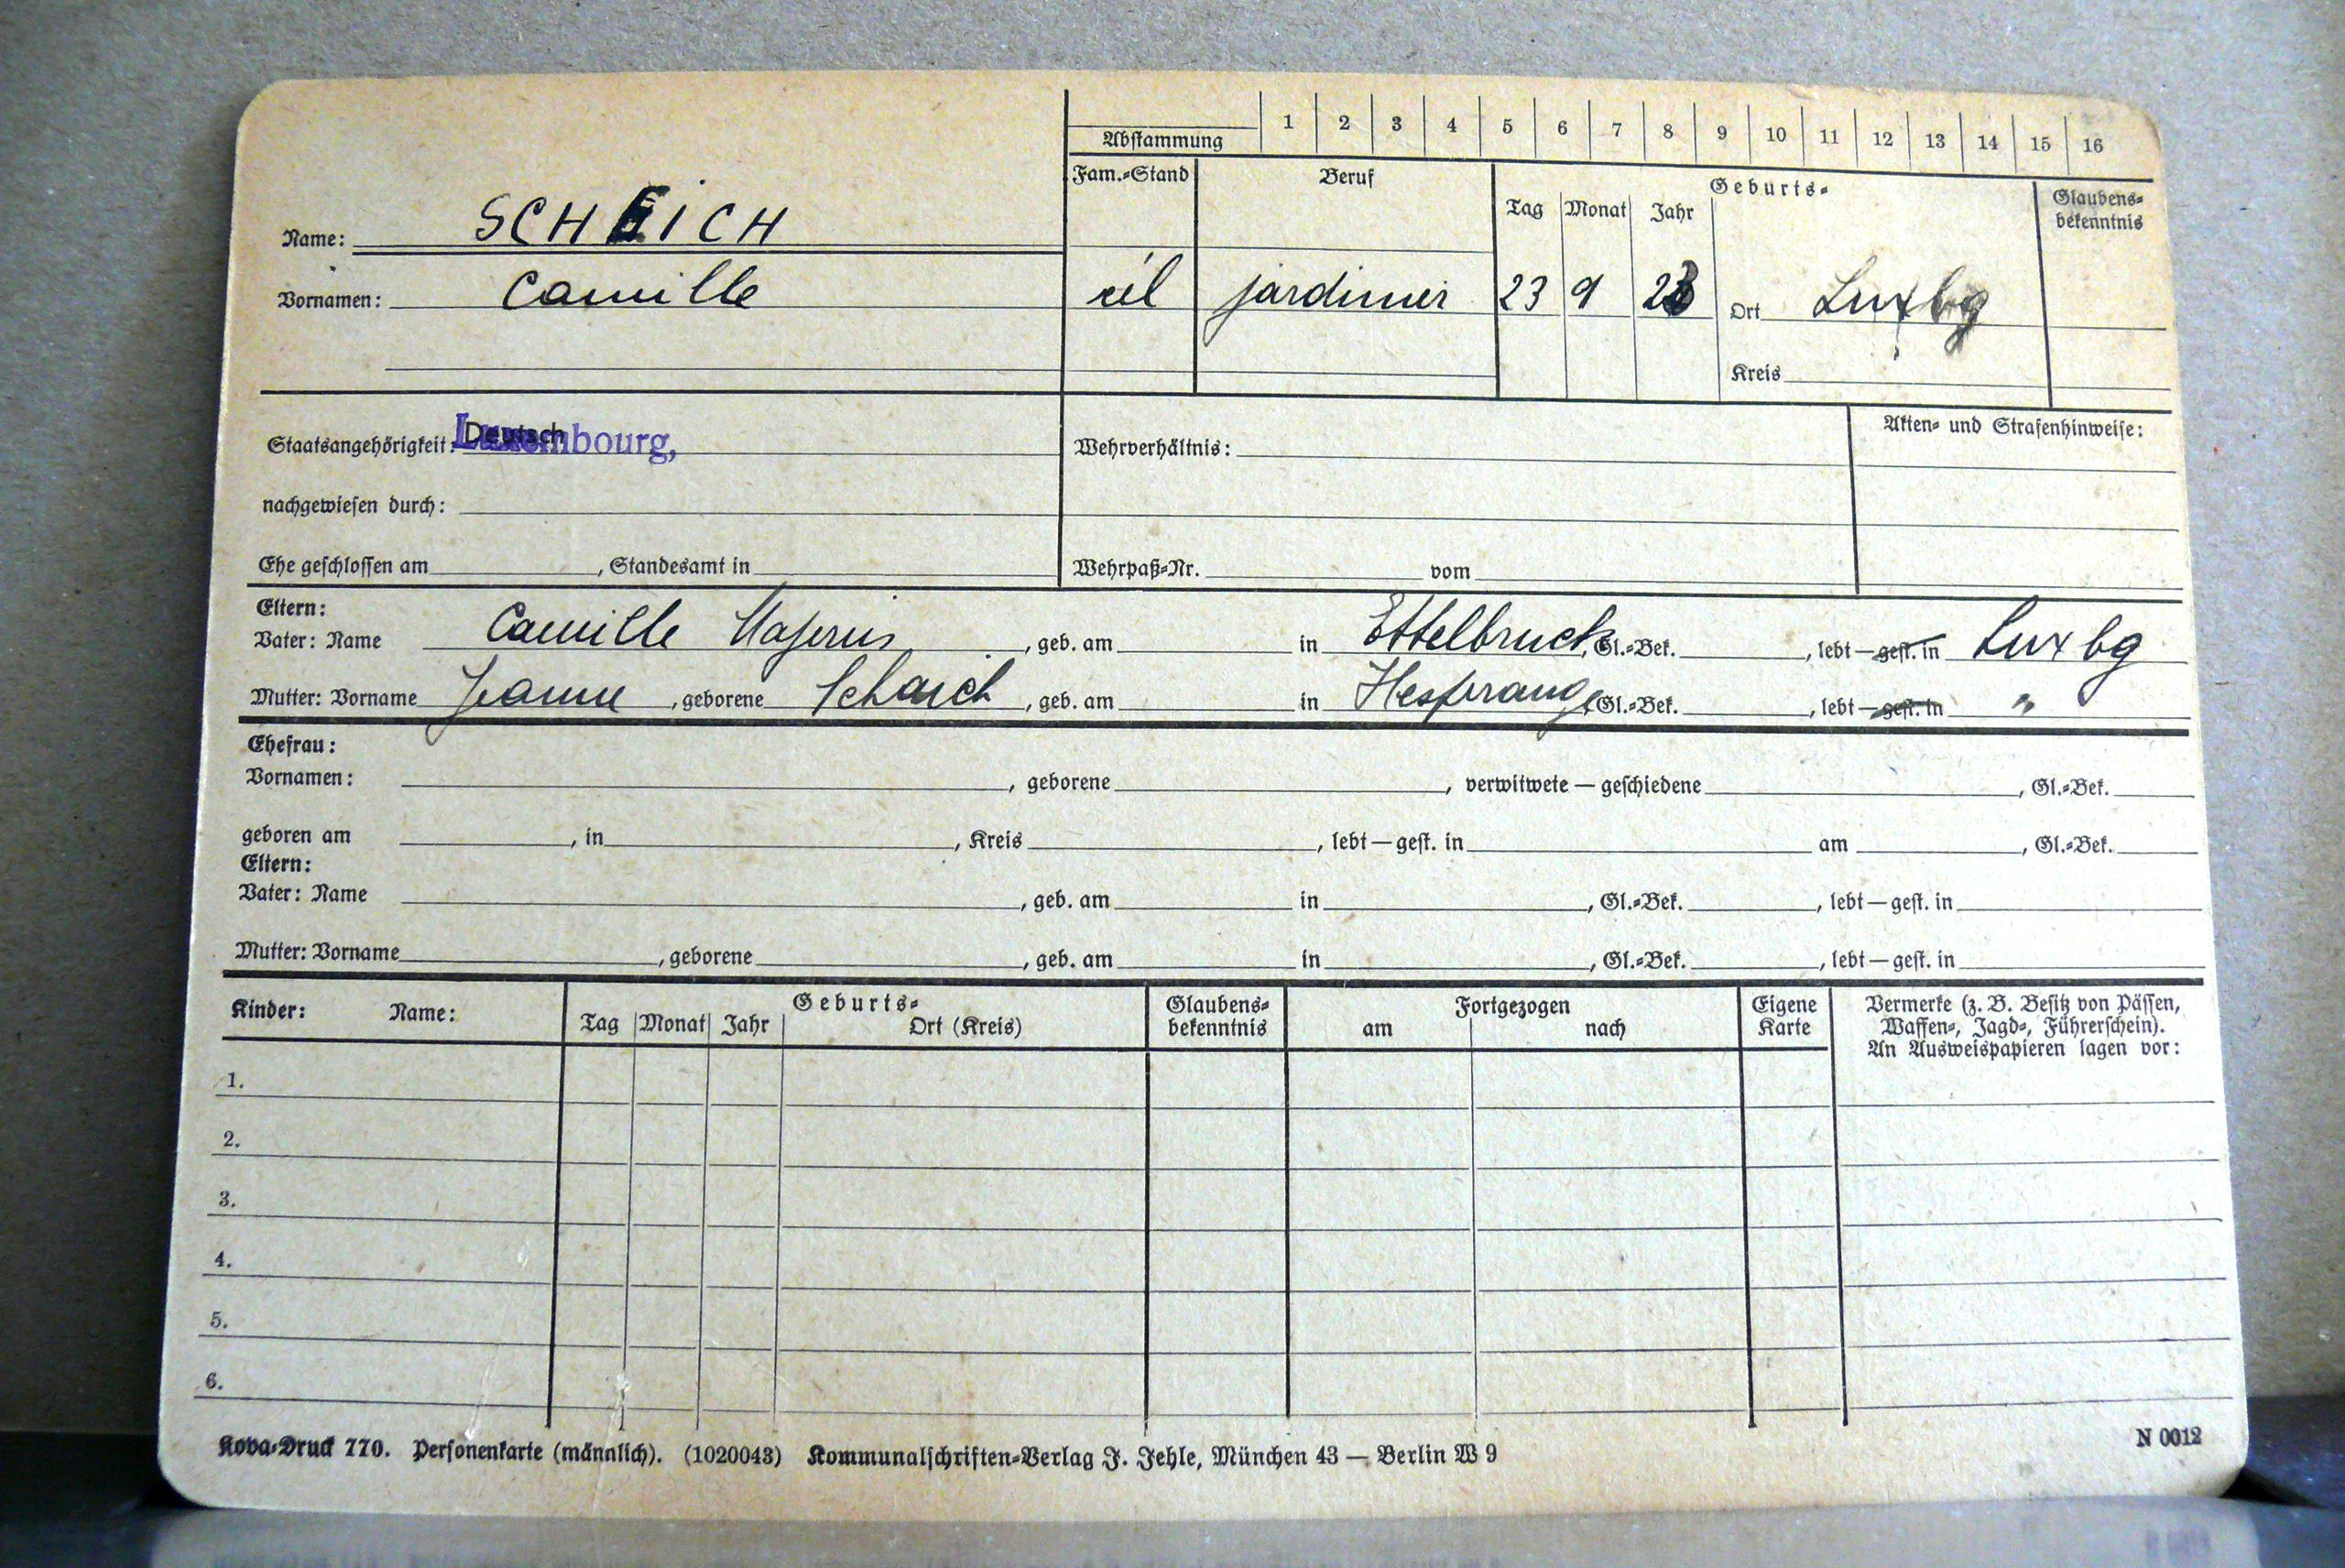 Abstammung 1 2 3 4 5 6 7 8 9 10 11 12 13 14 15 16
Fam.-Stand Beruf Geburts- Glaubens-
Tag Monat Jahr bekenntnis
Name: SCHEICH
Vornamen: Camille cél jardinier 23 9 23 Ort Luxbg
Kreis
Staatsangehörigkeit: Deutsch Luxembourg, Wehrverhältnis: Akten- und Strafenhinweise:
nachgewiesen durch:
Ehe geschlossen am , Standesamt in Wehrpaß-Nr. vom
Eltern:
Vater: Name Camille Majerus , geb. am in Ettelbruck, Gl.-Bek. , lebt—gest. in Luxbg
Mutter: Vorname Jeanne , geborene Schaich , geb. am in Hesperange, Gl.-Bek. , lebt—gest. in "
Ehefrau:
Vornamen: , geborene , verwitwete — geschiedene , Gl.-Bek.
geboren am , in , Kreis , lebt—gest. in am , Gl.-Bek.
Eltern:
Vater: Name , geb. am in , Gl.-Bek. , lebt—gest. in
Mutter: Vorname , geborene , geb. am in , Gl.-Bek. , lebt—gest. in
Kinder: Name: Geburts- Glaubens- Fortgezogen Eigene Vermerke (z. B. Besitz von Pässen,
Tag Monat Jahr Ort (Kreis) bekenntnis am nach Karte Waffen-, Jagd-, Führerschein).
An Ausweispapieren lagen vor:
1.
2.
3.
4.
5.
6.
Kova-Druck 770. Personenkarte (männlich). (1020043) Kommunalschriften-Verlag J. Jehle, München 43 — Berlin W 9 N 0012